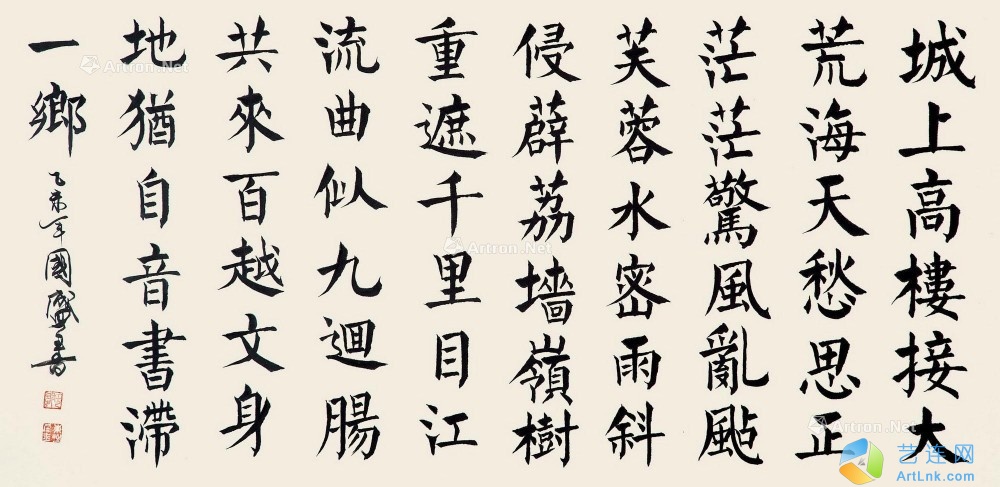 城上高樓接大
荒海天愁思正
茫茫驚風亂颭
芙蓉水密雨斜
侵薜荔墻嶺樹
重遮千里目江
流曲似九迴腸
共來百越文身
地猶自音書滯
一鄉
乙未年國盛書
Artron.Net
Artron.Net
Artron.Net
Artron.Net
Artron.Net
艺连网
ArtLnk.com